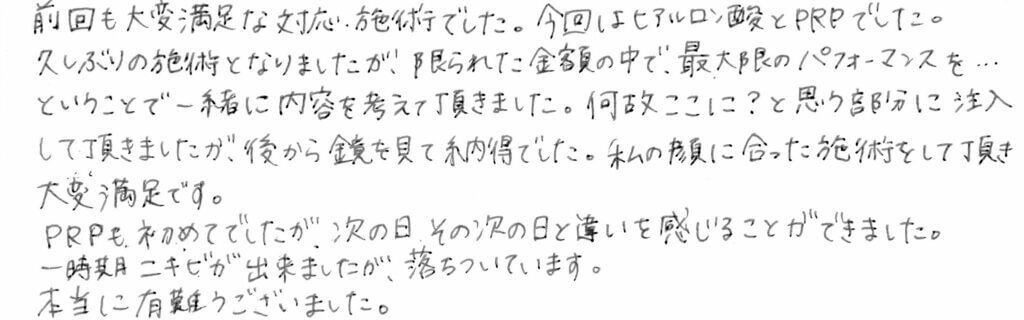 前回も大変満足な対応、施術でした。今回はヒアルロン酸とPRPでした。
久しぶりの施術となりましたが、限られた金額の中で、最大限のパフォーマンスを…
ということで一緒に内容を考えて頂きました。何故ここに？と思う部分に注入
して頂きましたが、後から鏡を見て納得でした。私の顔に合った施術をして頂き
大変満足です。
PRPも初めてでしたが、次の日、その次の日と違いを感じることができました。
一時期ニキビが出来ましたが、落ちついています。
本当に有難うございました。